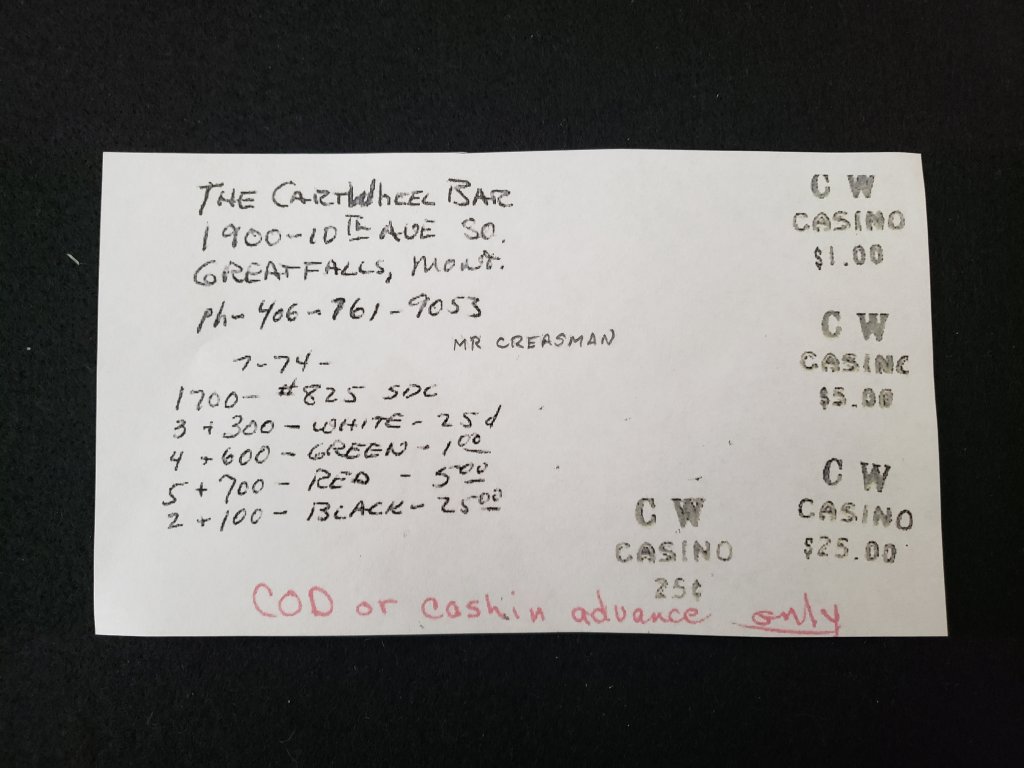 THE CARTWHEEL BAR
1900-10TH AVE SO.
GREAT FALLS, MONT.
ph- 406-761-9053
MR CREASMAN
7-74-
1700- #825 SDC
3 + 300 - WHITE - 25¢
4 + 600 - GREEN - 1.00
5 + 700 - RED - 5.00
2 + 100 - BLACK - 25.00
C W
CASINO
$1.00
C W
CASINO
$5.00
C W
CASINO
$25.00
C W
CASINO
25¢
COD or cash in advance only